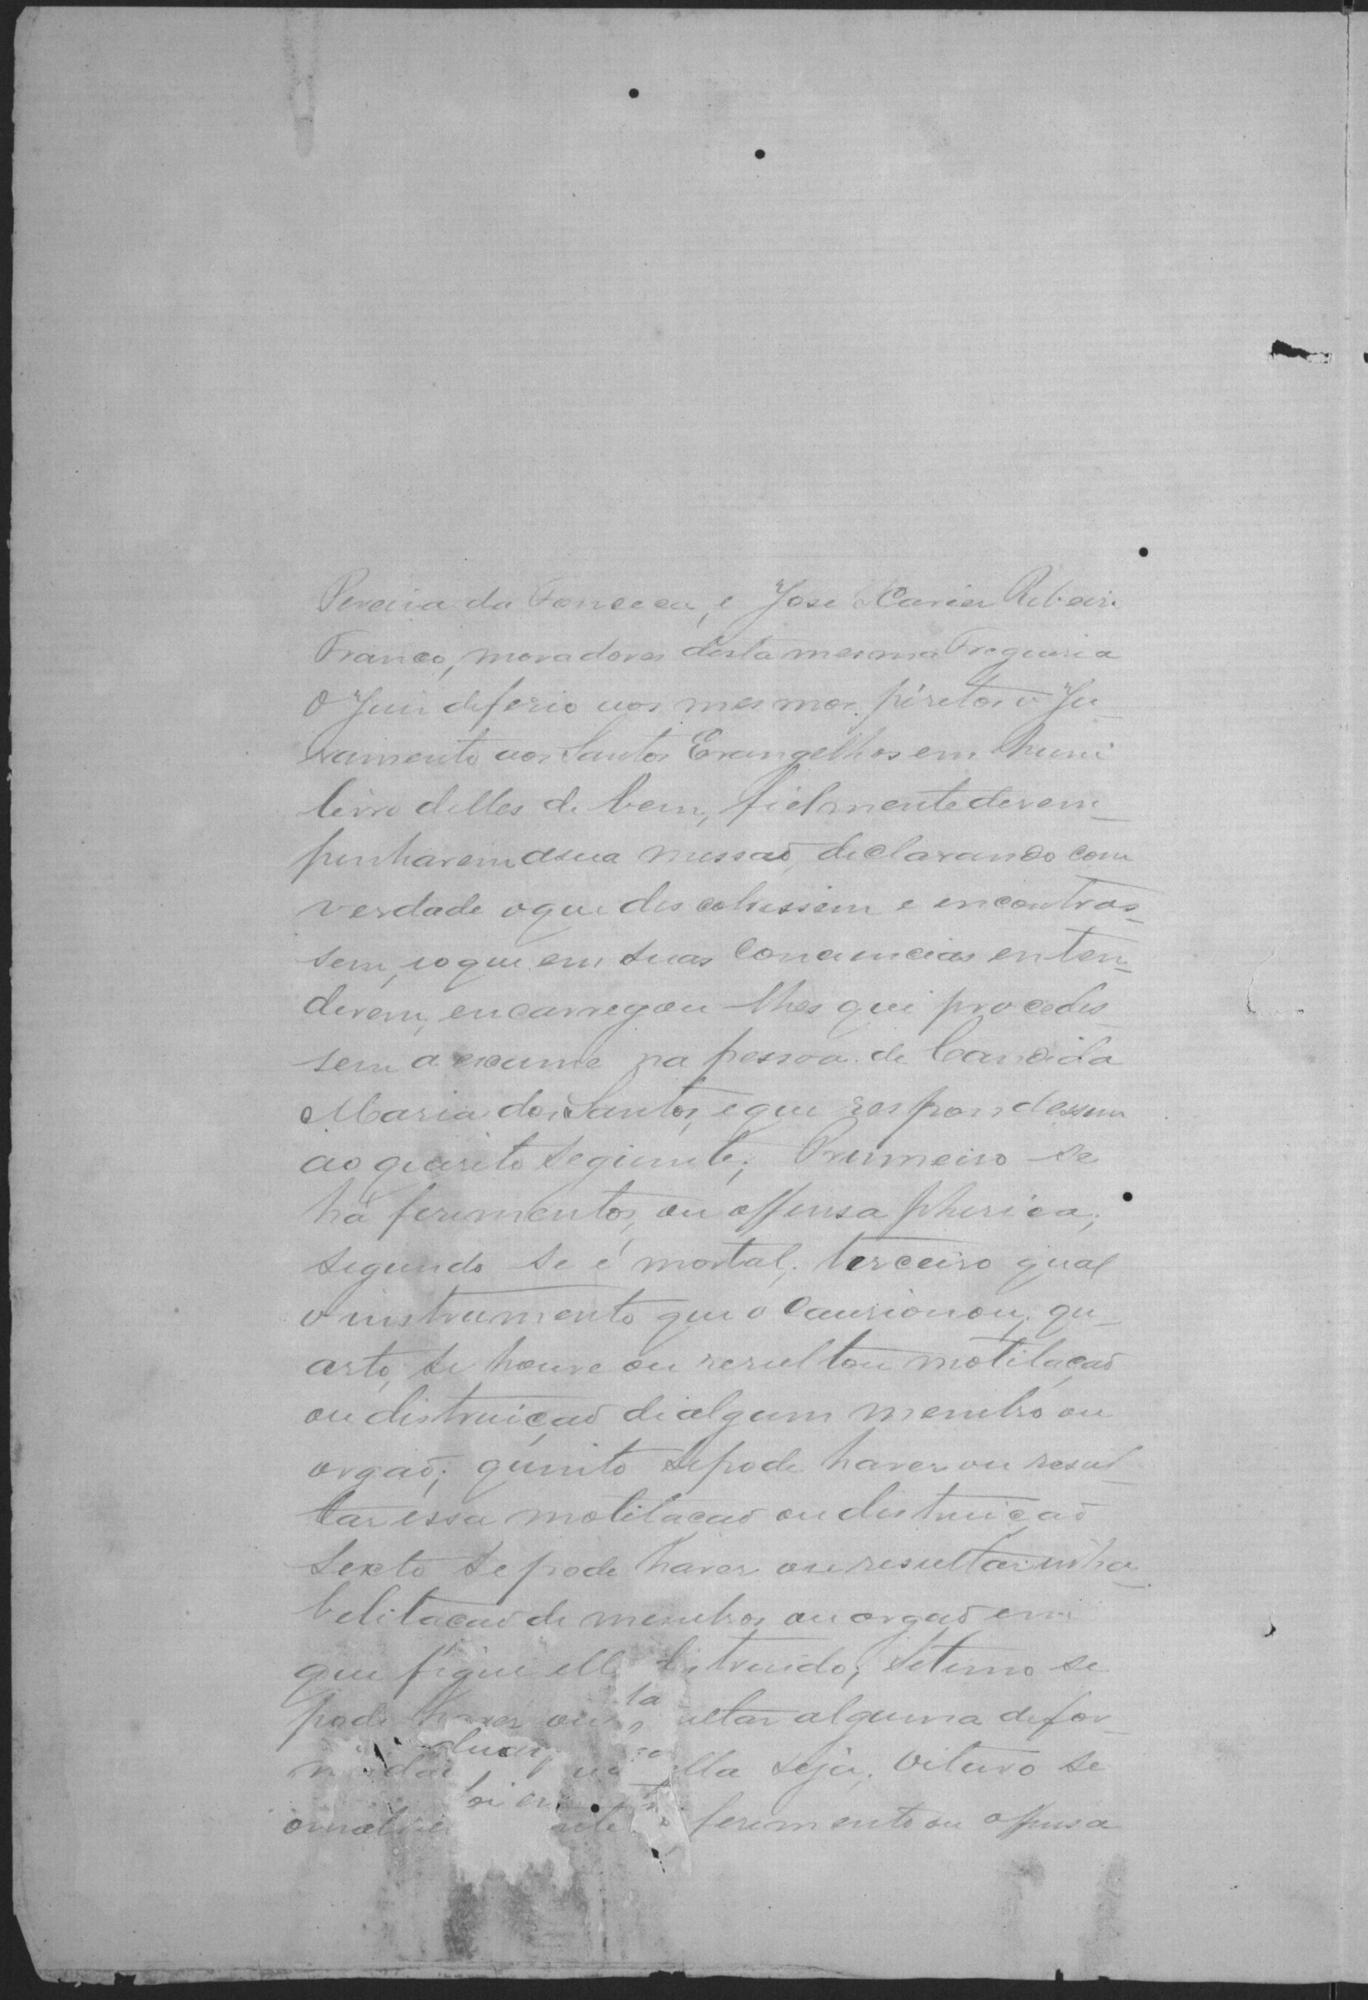 Pereira da Fonceca, e Jose Xavier Ribeiro
Franco, moradores desta mesma Freguesia
O Juis deferio aos mesmos piritos o Ju-
ramento aos Santos Evangelhos em hum
livro delles de bem, fielmente desem-
penharem asua missaõ, declarando com
verdade oque descobrissem e encontras-
sem, eoque em suas Conciencias enten-
derem, encarregou-lhes que procedes-
sem a exame na pessoa de Candida
Maria dos Santos, eque respondessem
ao quisito seguinte; Primeiro se
há ferimentos, ou offensa phisica;
segundo se é mortal; terceiro qual
o instrumento que o Causionou; qu-
arto, se houve ou resultou motilaçaõ
ou distruiçaõ de algum membro ou
orgaõ; quinto se pode haver ou resul-
tar essa motilacaõ ou distruiçaõ
Sexto se pode haver ou resultar inha-
belitacaõ de membros ou orgaõ em
que fique elle distruido; setimo se
pode haver ou ultar alguma defor-
ella seja; oitavo se
ferimento ou offensa